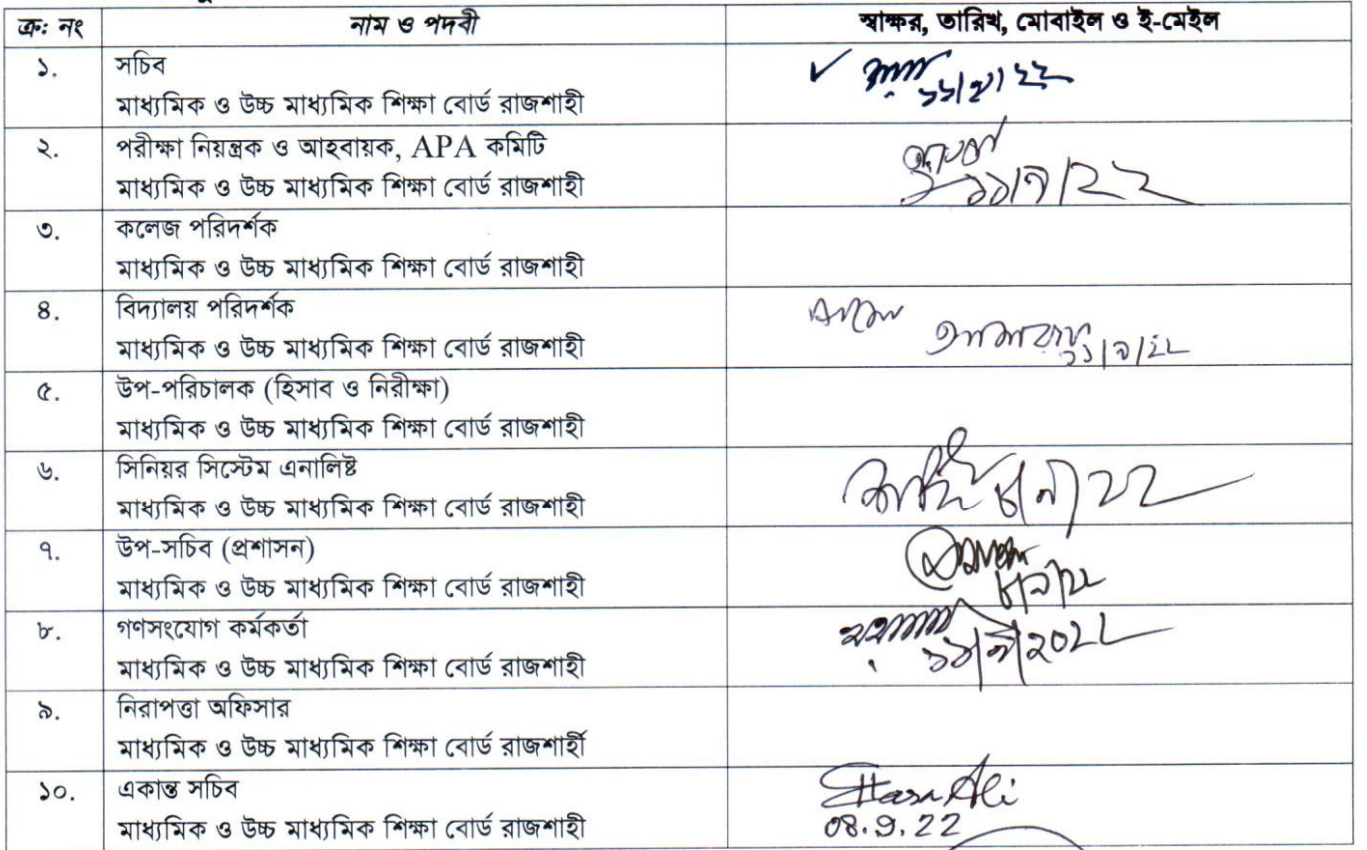 ক্র: নং নাম ও পদবী স্বাক্ষর, তারিখ, মোবাইল ও ই-মেইল
১. সচিব
মাধ্যমিক ও উচ্চ মাধ্যমিক শিক্ষা বোর্ড রাজশাহী
২. পরীক্ষা নিয়ন্ত্রক ও আহবায়ক, APA কমিটি
মাধ্যমিক ও উচ্চ মাধ্যমিক শিক্ষা বোর্ড রাজশাহী
১১/৯/২২
৩. কলেজ পরিদর্শক
মাধ্যমিক ও উচ্চ মাধ্যমিক শিক্ষা বোর্ড রাজশাহী
৪. বিদ্যালয় পরিদর্শক
মাধ্যমিক ও উচ্চ মাধ্যমিক শিক্ষা বোর্ড রাজশাহী
১১/৯/২২
৫. উপ-পরিচালক (হিসাব ও নিরীক্ষা)
মাধ্যমিক ও উচ্চ মাধ্যমিক শিক্ষা বোর্ড রাজশাহী
৬. সিনিয়র সিস্টেম এনালিষ্ট
মাধ্যমিক ও উচ্চ মাধ্যমিক শিক্ষা বোর্ড রাজশাহী
৮/৯/২২
৭. উপ-সচিব (প্রশাসন)
মাধ্যমিক ও উচ্চ মাধ্যমিক শিক্ষা বোর্ড রাজশাহী
৮/৯/২২
৮. গণসংযোগ কর্মকর্তা
মাধ্যমিক ও উচ্চ মাধ্যমিক শিক্ষা বোর্ড রাজশাহী
১১/৯/২০২২
৯. নিরাপত্তা অফিসার
মাধ্যমিক ও উচ্চ মাধ্যমিক শিক্ষা বোর্ড রাজশার্হী
১০. একান্ত সচিব
মাধ্যমিক ও উচ্চ মাধ্যমিক শিক্ষা বোর্ড রাজশাহী
08.9.22